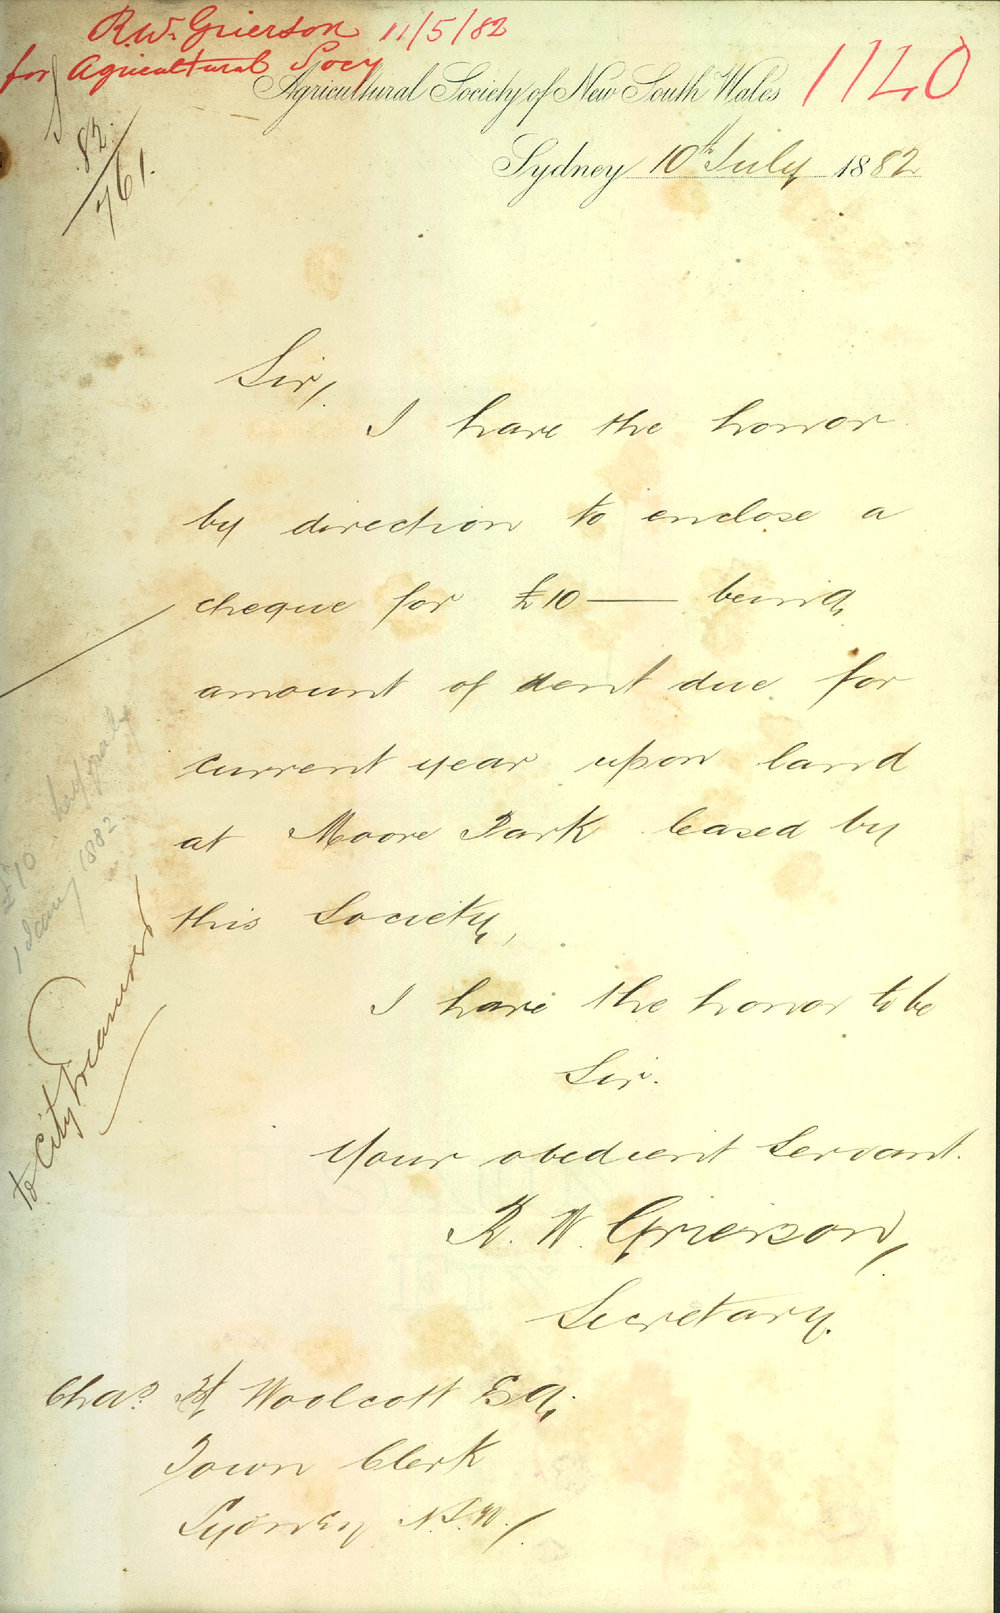 R.W. Grierson 11/5/82
for Agricultural Socy
1140
Agricultural Society of New South Wales
82/761.
Sydney 10th July 1882
Sir,
I have the honor
by direction to enclose a
cheque for £10 — being
amount of rent due for
current year upon land
at Moore Park leased by
this Society,
I have the honor to be
Sir.
Your obedient Servant.
R. W. Grierson,
Secretary.
Chas. H Woolcott Esq.
Town Clerk
Sydney N.S.W./
£10
1882
to City Treasurer